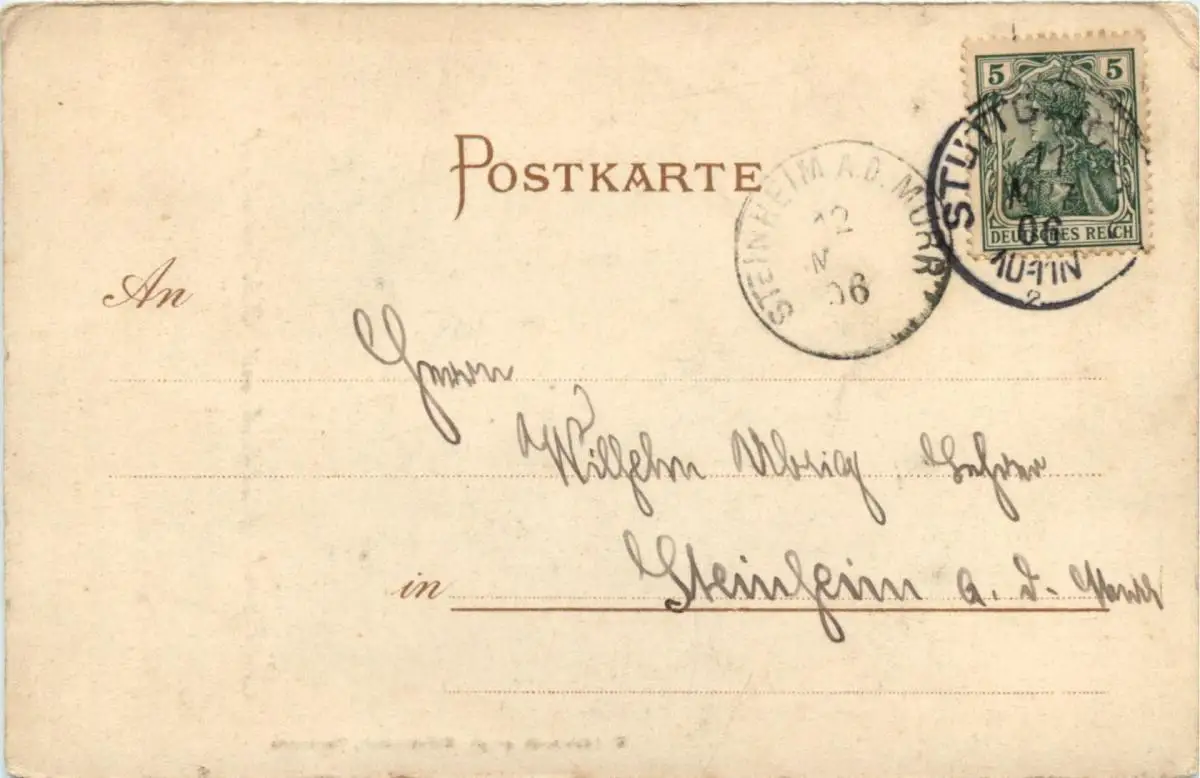 5 5
DEUTSCHES REICH
STUTTG
11
MRZ
06
10-11N
2
POSTKARTE
STEINHEIM A.D. MURR
12
M
06
An
Herrn
Wilhelm Lehrer
in Steinheim a. d. Murr